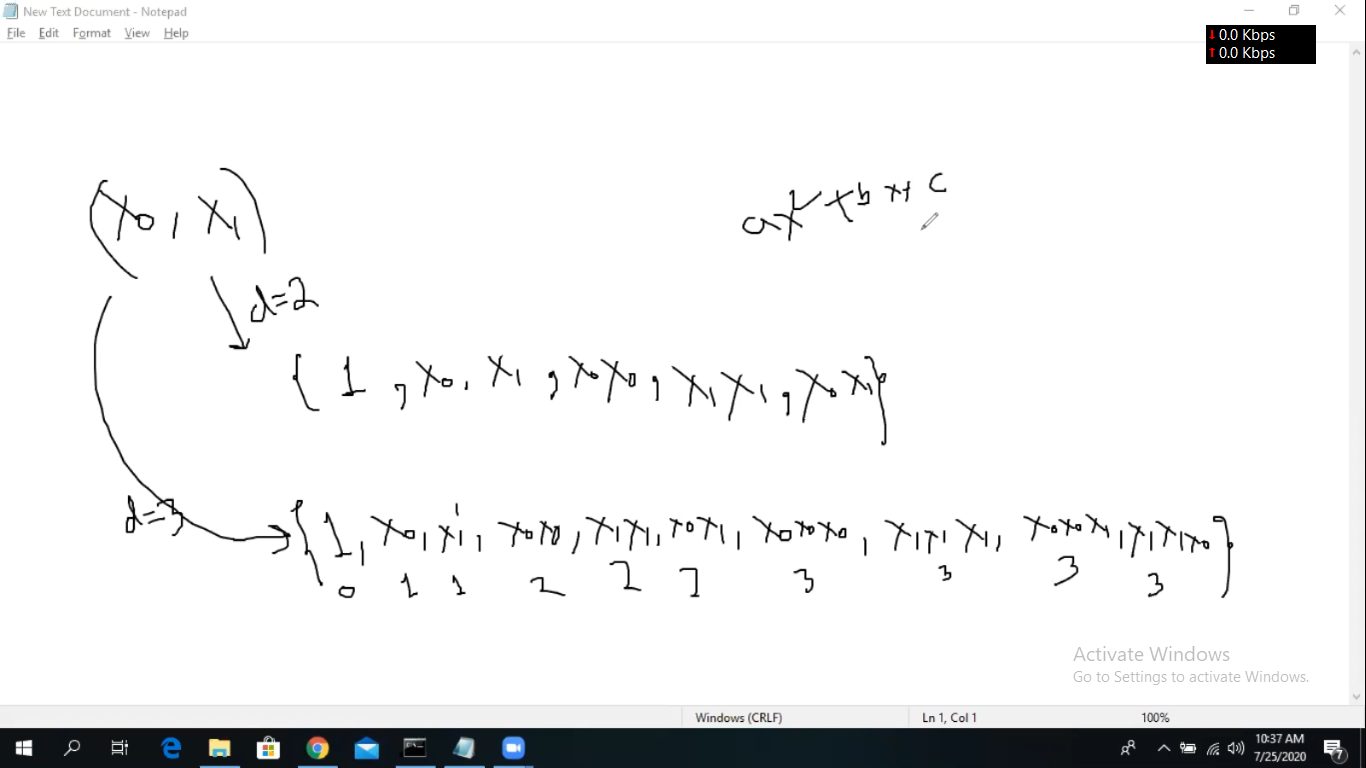 New Text Document - Notepad
File Edit Format View Help
↓ 0.0 Kbps
↑ 0.0 Kbps
(x₀, x₁)
ax² + bx + c
d=2
{ 1 , x₀, x₁ , x₀x₀ , x₁x₁ , x₀x₁}
d=3
{1, x₀, x₁, x₀x₀, x₁x₁, x₀x₁, x₀x₀x₀, x₁x₁x₁, x₀x₀x₁, x₁x₁x₀}
0 1 1 2 2 2 3 3 3 3
Activate Windows
Go to Settings to activate Windows.
Windows (CRLF) Ln 1, Col 1 100%
10:37 AM
7/25/2020
7